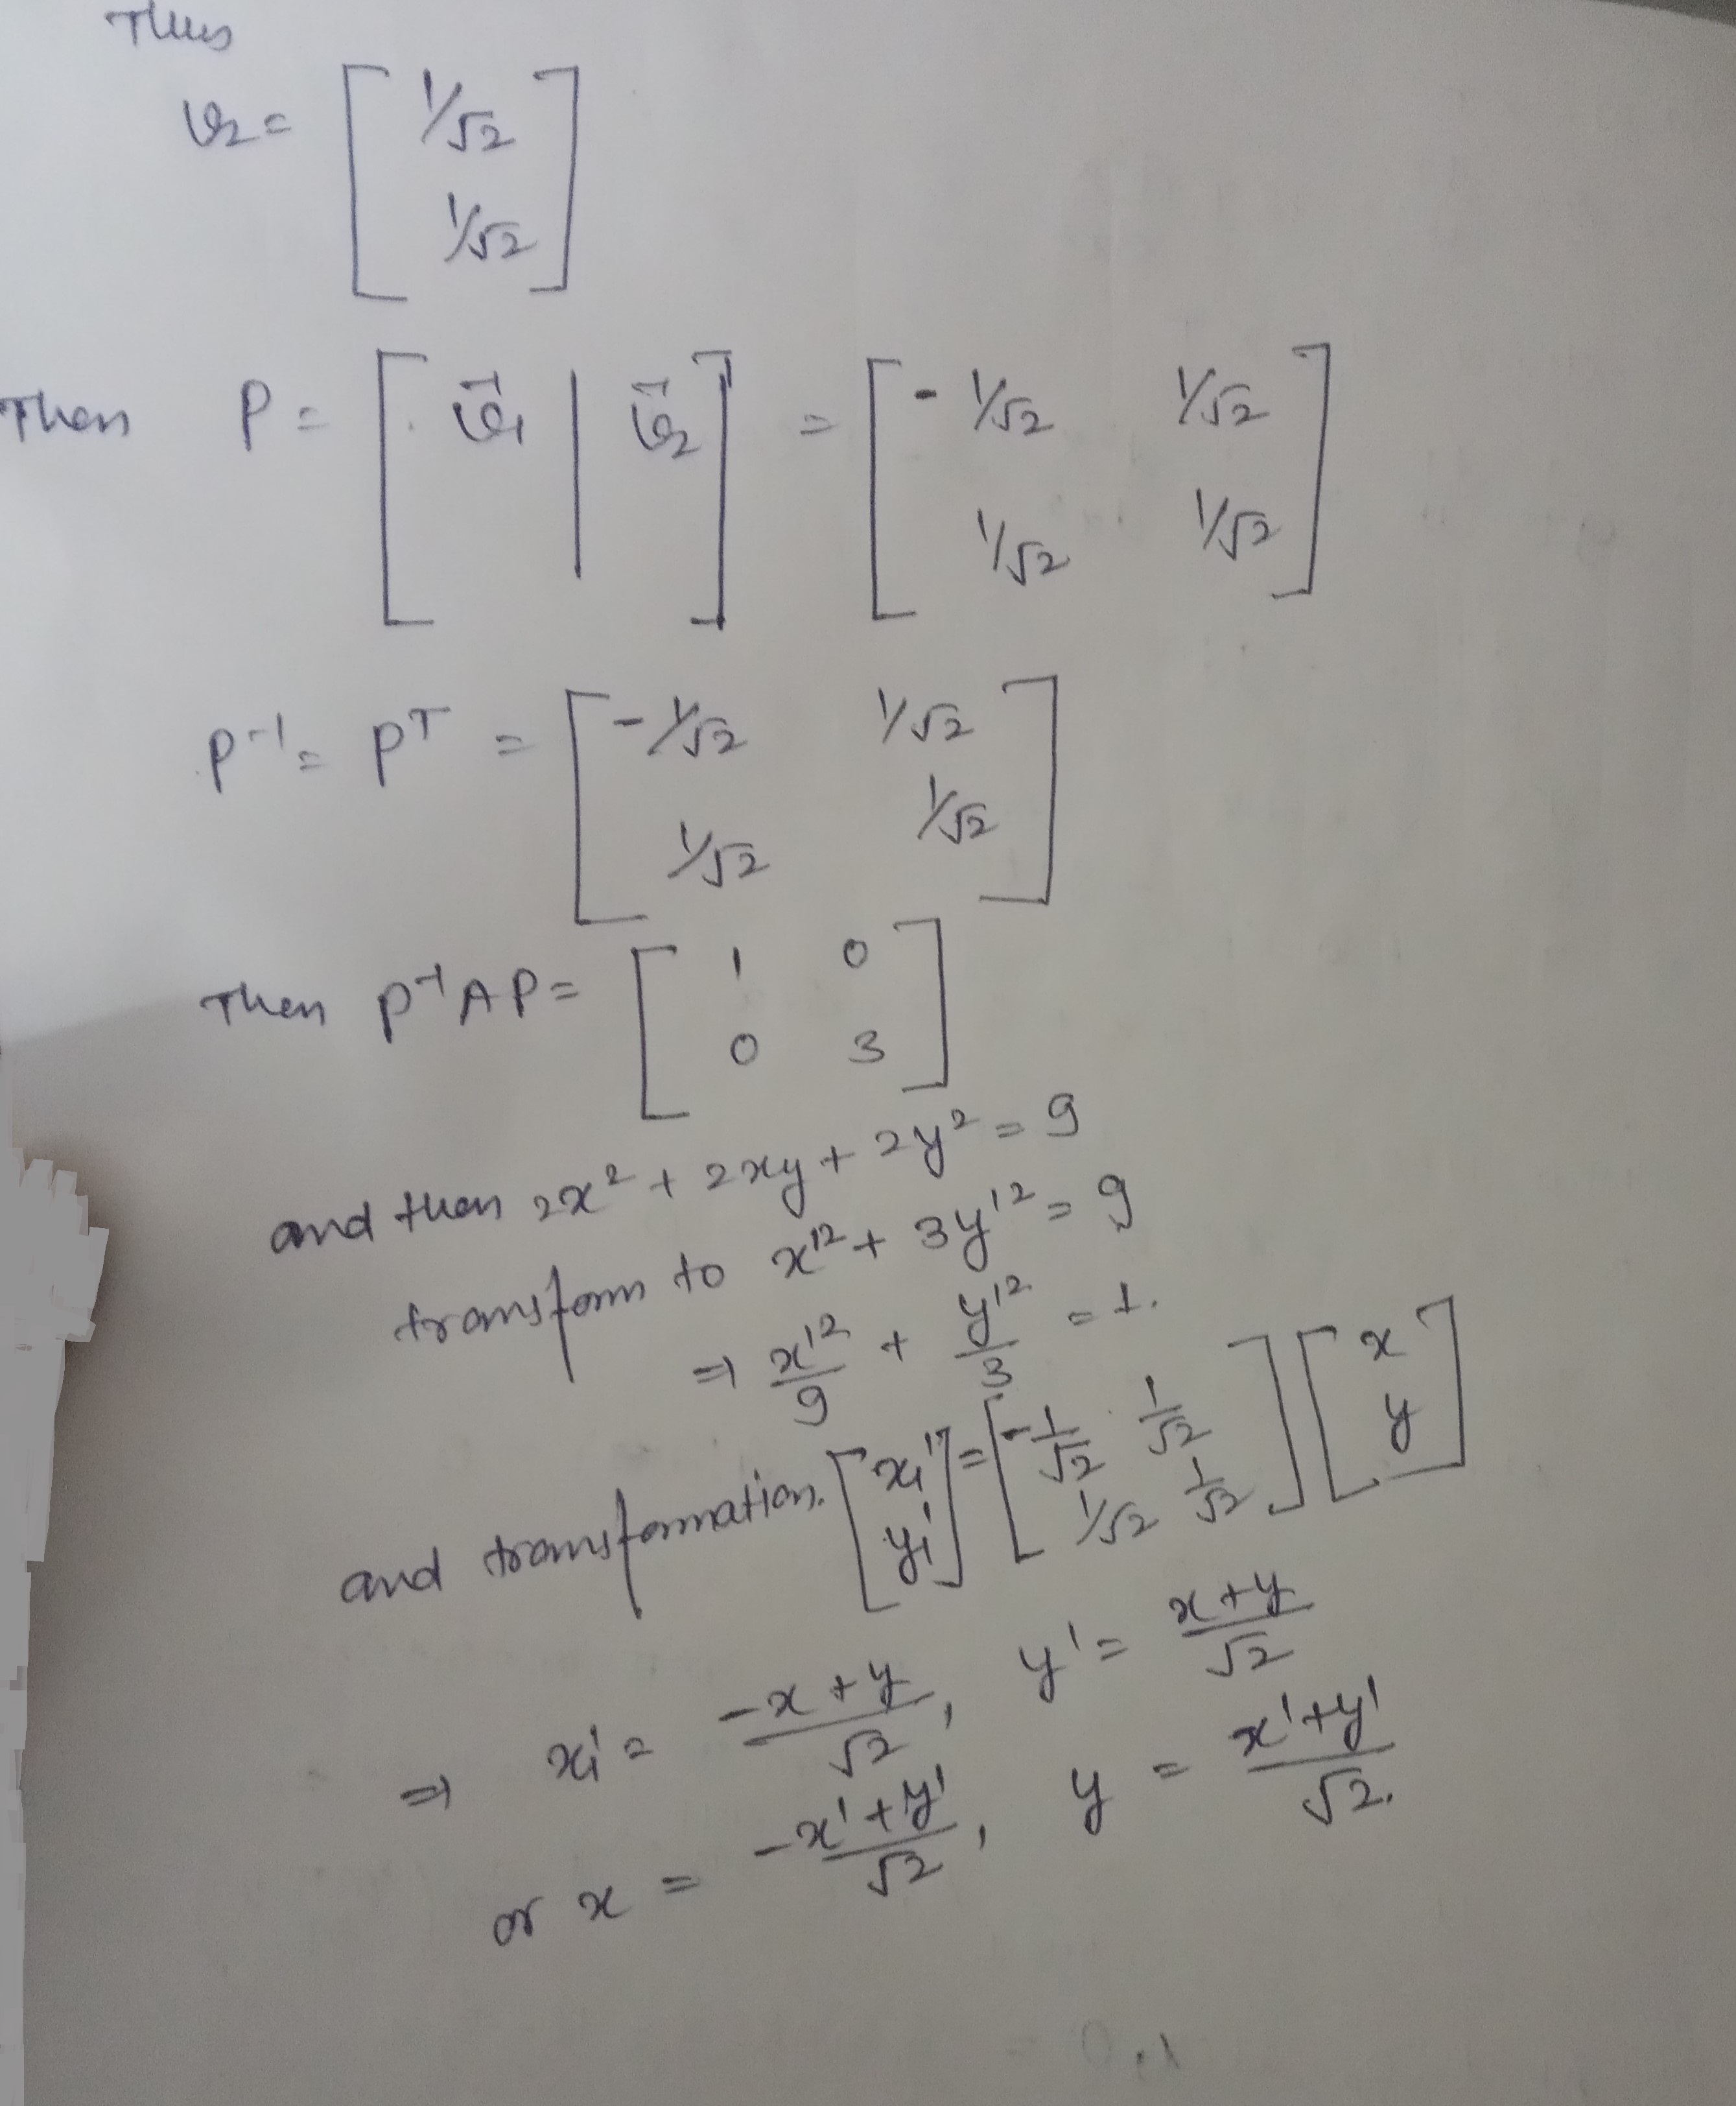 Thus
v₂ = [ 1/√2
1/√2 ]
Then P = [ v⃗₁ | v⃗₂ ] = [ -1/√2 1/√2
1/√2 1/√2 ]
P⁻¹ = Pᵀ = [ -1/√2 1/√2
1/√2 1/√2 ]
Then P⁻¹AP = [ 1 0
0 3 ]
and then 2x² + 2xy + 2y² = 9
transform to x'² + 3y'² = 9
⇒ x'²/9 + y'²/3 = 1.
and transformation. [ x₁' y₁' ] = [ -1/√2 1/√2
1/√2 1/√2 ] [ x y ]
⇒ x₁' = (-x+y)/√2, y' = (x+y)/√2
or x = (-x'+y')/√2, y = (x'+y')/√2.